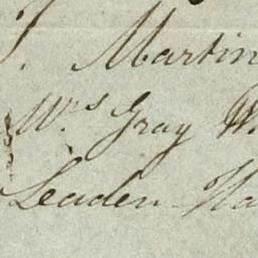 J. Martin
Mrs Gray W
Leaden Ha